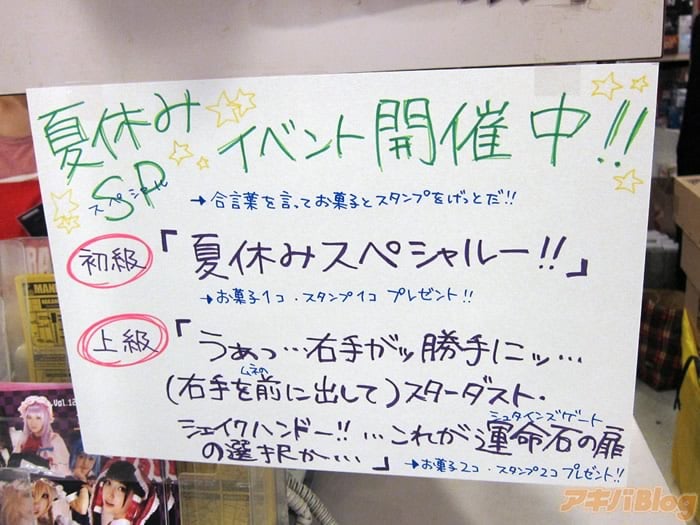 夏休み
SP
スペシャル
イベント開催中!!
→合言葉を言ってお菓子とスタンプをげっとだ!!
初級「夏休みスペシャルー!!」
→お菓子1コ・スタンプ1コ プレゼント!!
上級「うぁっ…右手がッ勝手にッ…
ムネの
(右手を前に出して)スターダスト・
シュタインズゲート
シェイクハンドー!!…これが運命石の扉
の選択か…」
→お菓子2コ・スタンプ2コ プレゼント!!
Vol.12
アキバBlog